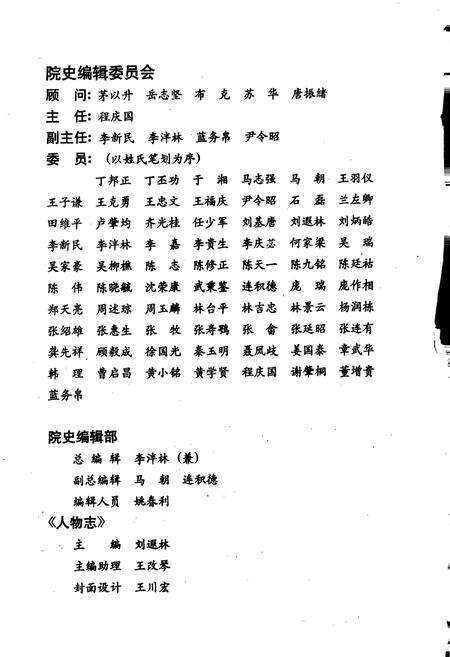 院史编辑委员会
顾 问：茅以升 岳志坚 布 克 苏 华 唐振绪
主 任：程庆国
副主任：李新民 李泮林 蓝务帛 尹令昭
委 员：（以姓氏笔划为序）
丁邦正 丁丕功 于 湘 马志强 马 朝 王羽仪
王子谦 王克勇 王忠文 王福庆 尹令昭 石 磊 兰左卿
田维平 卢肇均 齐光桂 任少军 刘基唐 刘遐林 刘炳皓
李新民 李泮林 李 嘉 李贵生 李庆苾 何家梁 吴 瑞
吴家豪 吴柳樵 陈 志 陈修正 陈天一 陈九铭 陈廷祜
陈 伟 陈晓毓 沈荣康 武秉鉴 连积德 庞 瑞 庞作相
郑天亮 周述琼 周玉麟 林台平 林吉忠 林景云 杨润栋
张绍雄 张惠生 张 牧 张寿鹗 张 畲 张廷昭 张连有
龚先祥 顾毅成 徐国光 秦玉明 聂凤歧 姜国泰 章武华
韩 理 曹启昌 黄小铭 黄学贤 程庆国 谢肇桐 董增贵
蓝务帛
院史编辑部
总 编 辑 李泮林（兼）
副总编辑 马 朝 连积德
编辑人员 姚春利
《人物志》
主 编 刘遐林
主编助理 王改琴
封面设计 王川宏